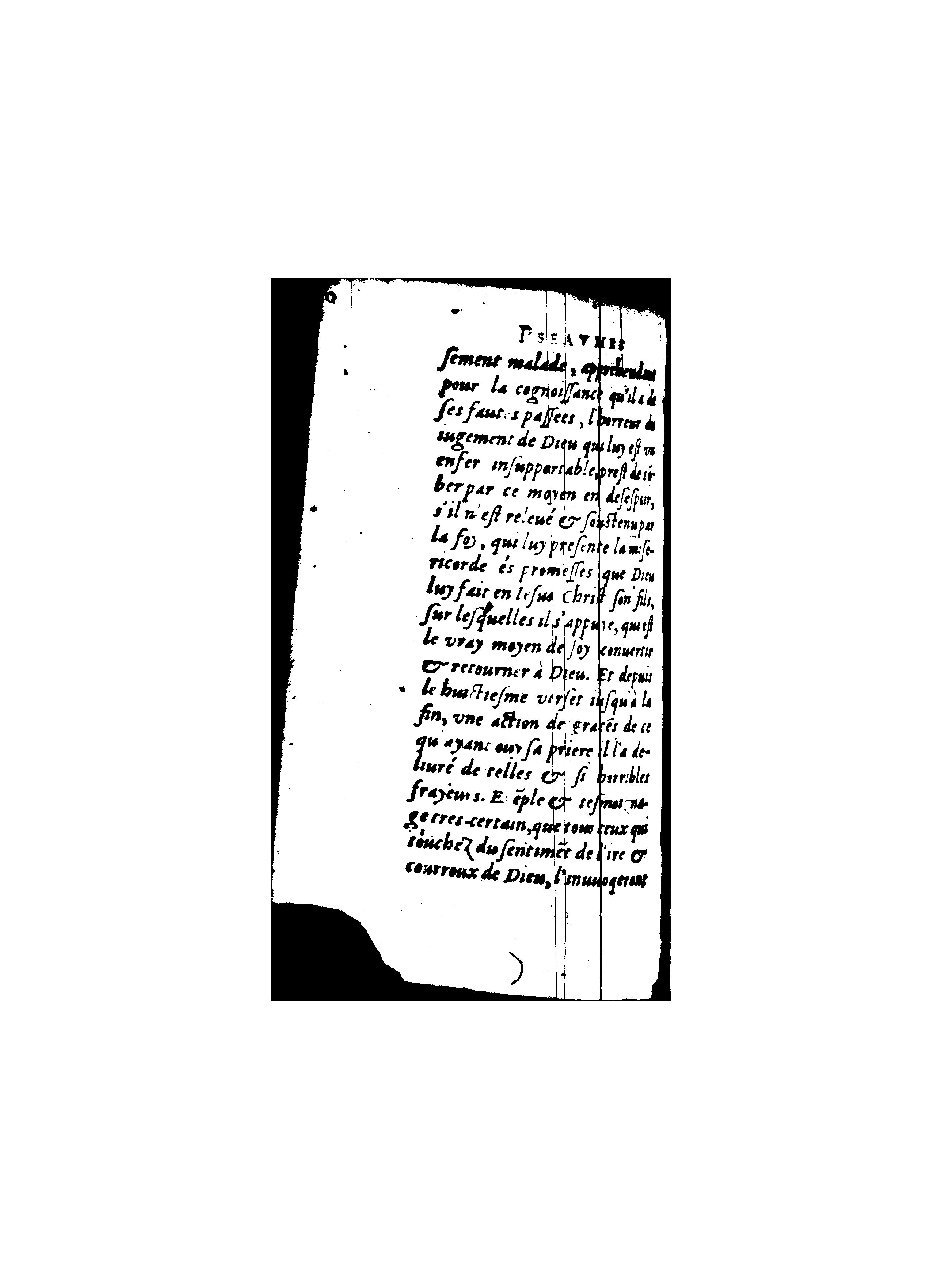 PSEAVMES
ſement malade, apprehendant
pour la cognoiſſance qu'il a de
ſes fautes paſſees, l'horreur du
iugement de Dieu qui luy eſt vn
enfer inſupportable, preſt de
ber par ce moyen en deſeſpoir,
s'il n'eſt releué & ſouſtenu par
la foy, qui luy preſente la miſe-
ricorde és promeſſes que Dieu
luy fait en Ieſus Chriſt ſon fils,
ſur leſquelles il s'appuye, qui eſt
le vray moyen de ſoy conuertir
& retourner à Dieu. Et depuis
le huictieſme verſet iuſqu'à la
fin, vne action de graces de ce
qu'ayant ouy ſa priere il l'a de-
liuré de telles & ſi horribles
frayeurs. Exẽple & teſmoigna-
ge tres-certain, que tous ceux qui
touchez du ſentimẽt de l'ire &
courroux de Dieu, l'inuoqueront